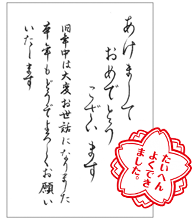 あけまして
おめでとう
ございます
旧年中は大変お世話になりました
本年もどうぞよろしくお願い
いたします
たいへん
よくでき
ました。